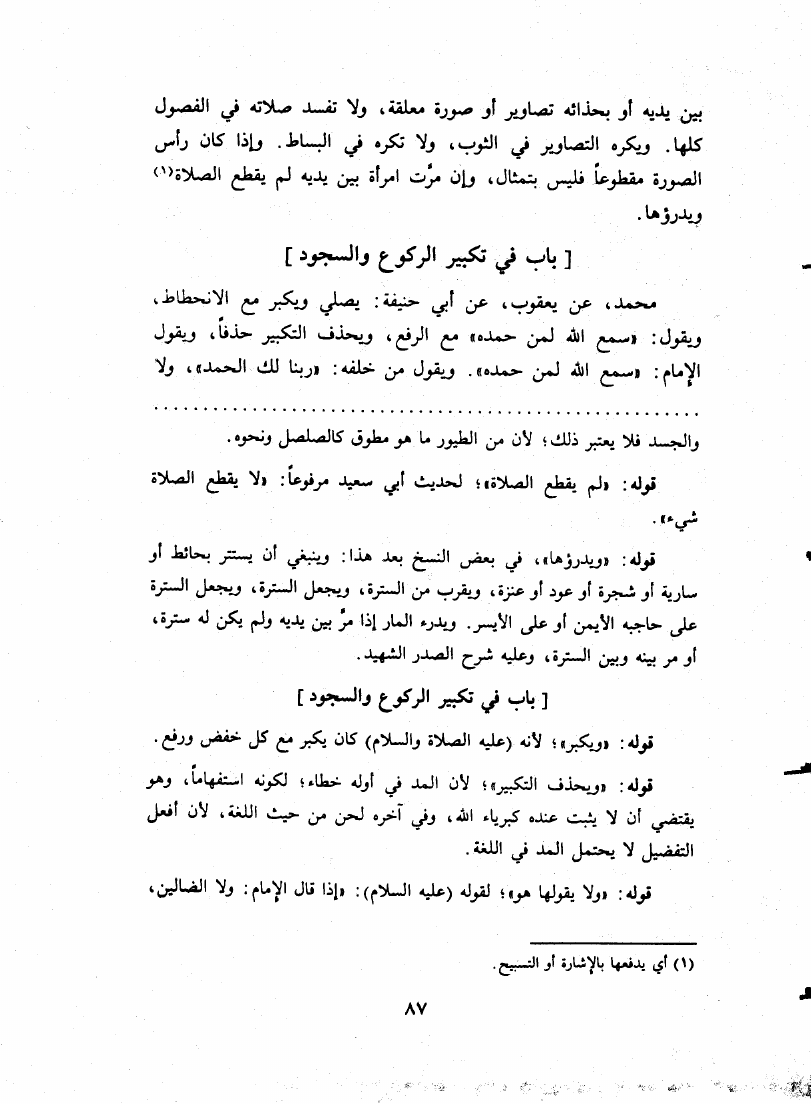 بين يديه أو بحذائه تصاوير أو صورة معلقة، ولا تفسد صلاته في الفصول
كلها. ويكره التصاوير في الثوب، ولا تكره في البساط. وإذا كان رأس
الصورة مقطوعاً فليس بتمثال، وإن مرّت امرأة بين يديه لم يقطع الصلاة(١)
ويدرؤها.
[ باب في تكبير الركوع والسجود ]
محمد، عن يعقوب، عن أبي حنيفة: يصلي ويكبر مع الانحطاط،
ويقول: «سمع الله لمن حمده» مع الرفع، ويحذف التكبير حذفاً، ويقول
الإمام: «سمع الله لمن حمده». ويقول من خلفه: «ربنا لك الحمد»، ولا
والجسد فلا يعتبر ذلك؛ لأن من الطيور ما هو مطوق كالصلصل ونحوه.
قوله: «لم يقطع الصلاة»؛ لحديث أبي سعيد مرفوعاً: «لا يقطع الصلاة
شيء».
قوله: «ويدرؤها»، في بعض النسخ بعد هذا: وينبغي أن يستتر بحائط أو
سارية أو شجرة أو عود أو عنزة، ويقرب من السترة، ويجعل السترة، ويجعل السترة
على حاجبه الأيمن أو على الأيسر. ويدرء المار إذا مرّ بين يديه ولم يكن له سترة،
أو مر بينه وبين السترة، وعليه شرح الصدر الشهيد.
[ باب في تكبير الركوع والسجود ]
قوله: «ويكبر»؛ لأنه (عليه الصلاة والسلام) كان يكبر مع كل خفض ورفع.
قوله: «ويحذف التكبير»؛ لأن المد في أوله خطاء؛ لكونه استفهاماً، وهو
يقتضي أن لا يثبت عنده كبرياء الله، وفي آخره لحن من حيث اللغة، لأن أفعل
التفضيل لا يحتمل المد في اللغة.
قوله: «ولا يقولها هو»؛ لقوله (عليه السلام): «إذا قال الإمام: ولا الضالين،
(١) أي يدفعها بالإشارة أو التسبيح.
٨٧